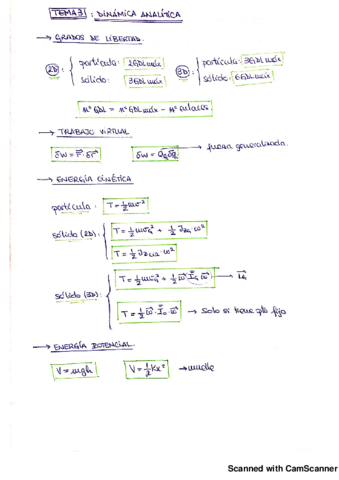 TEMA 3 : DINÁMICA ANALÍTICA
→ GRADOS DE LIBERTAD.
2D : { partícula: 2GDL máx
sólido: 3GDL máx
3D : { partícula: 3GDL máx
sólido: 6GDL máx
Nº GDL = Nº GDL máx - Nº enlaces
→ TRABAJO VIRTUAL
δW = F⃗ · δr⃗
δW = Q_q δq → fuerza generalizada.
→ ENERGÍA CINÉTICA
partícula: T = ½ mv²
sólido (2D): { T = ½ mv_G² + ½ I_ZG · ω²
T = ½ I_ZCIR · ω²
sólido (3D): { T = ½ mv_G² + ½ ω⃗ I_G ω⃗
T = ½ ω⃗ · I_O · ω⃗ → Solo si tiene pto fijo
→ ENERGÍA POTENCIAL.
V = mgh
V = ½ Kx² → muelle
Scanned with CamScanner